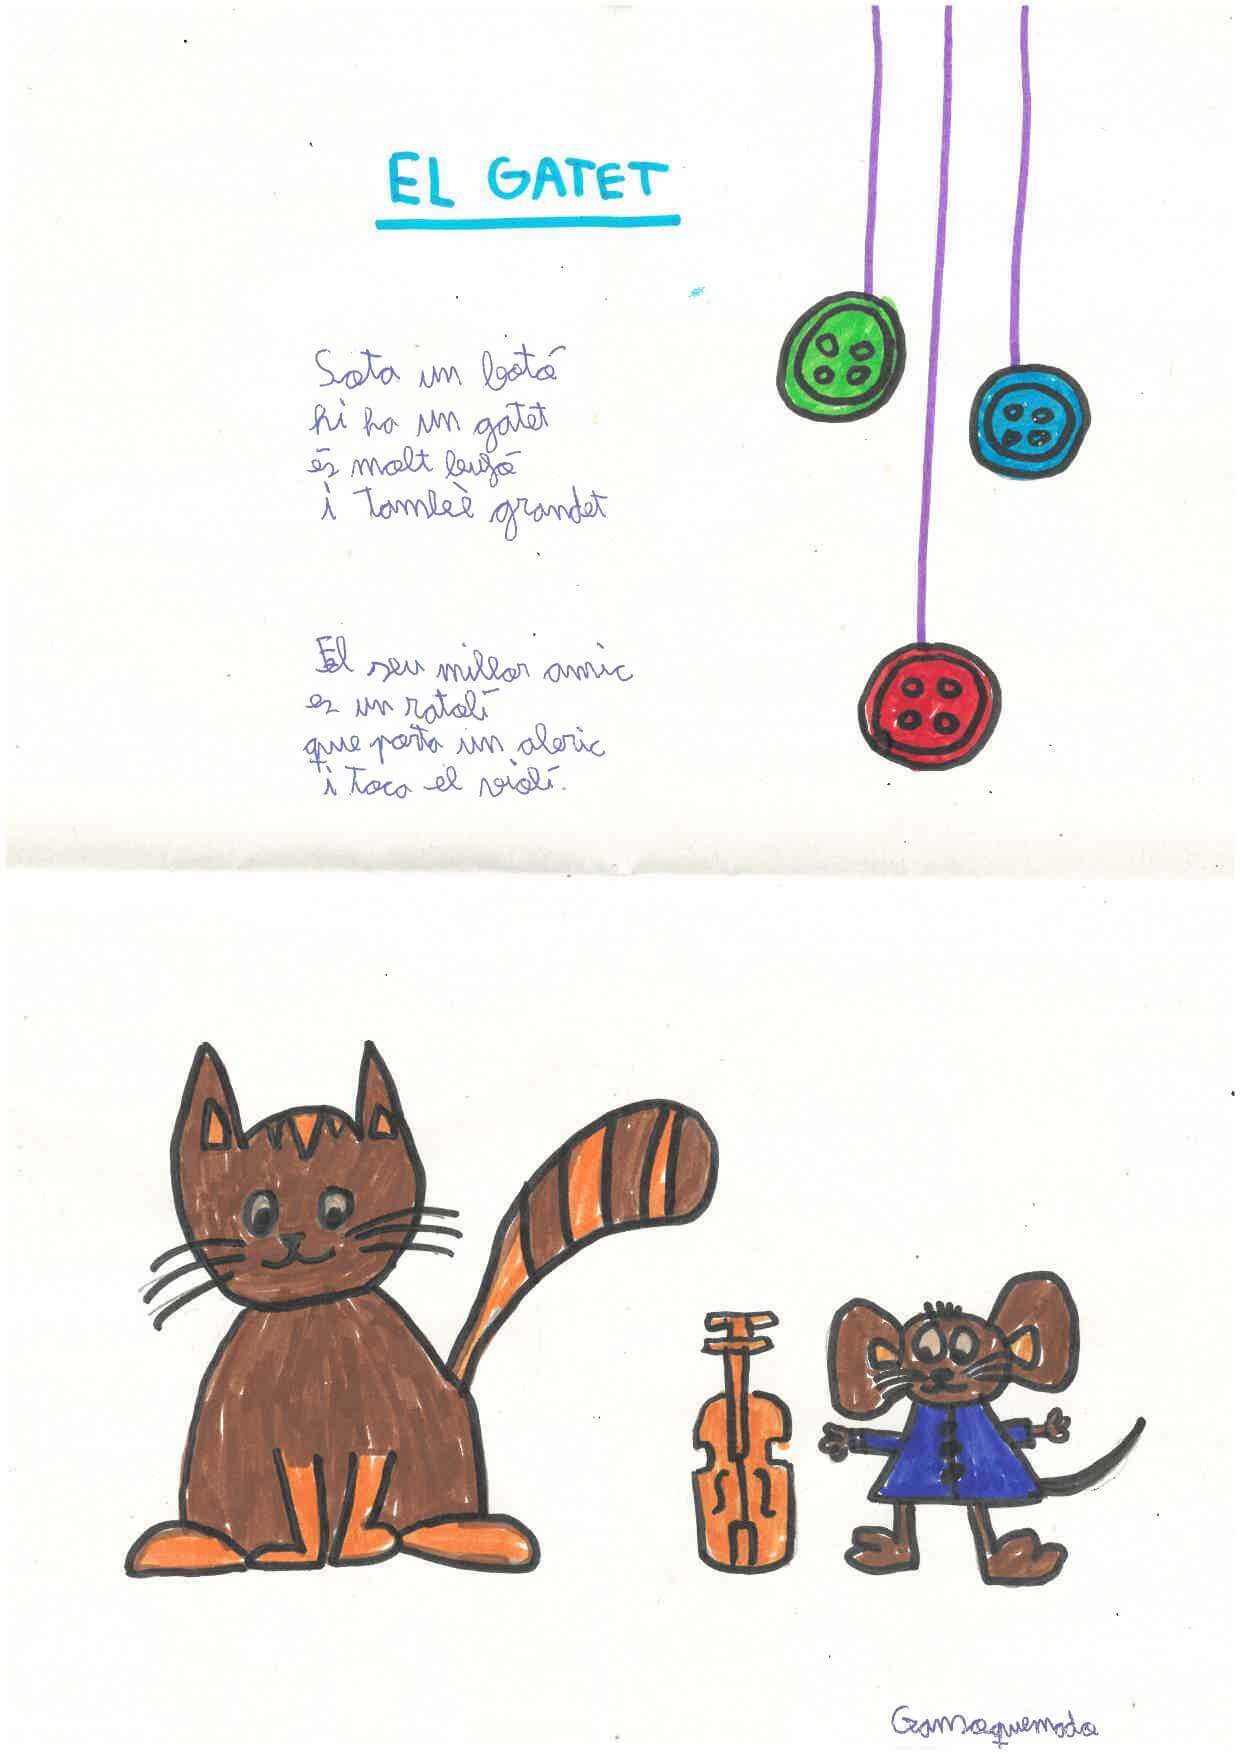 EL GATET
Sota un botó
hi ha un gatet
és molt bufó
i també grandet
El seu millor amic
es un ratolí
que porta un abric
i toca el violí.
Gamsaquemada